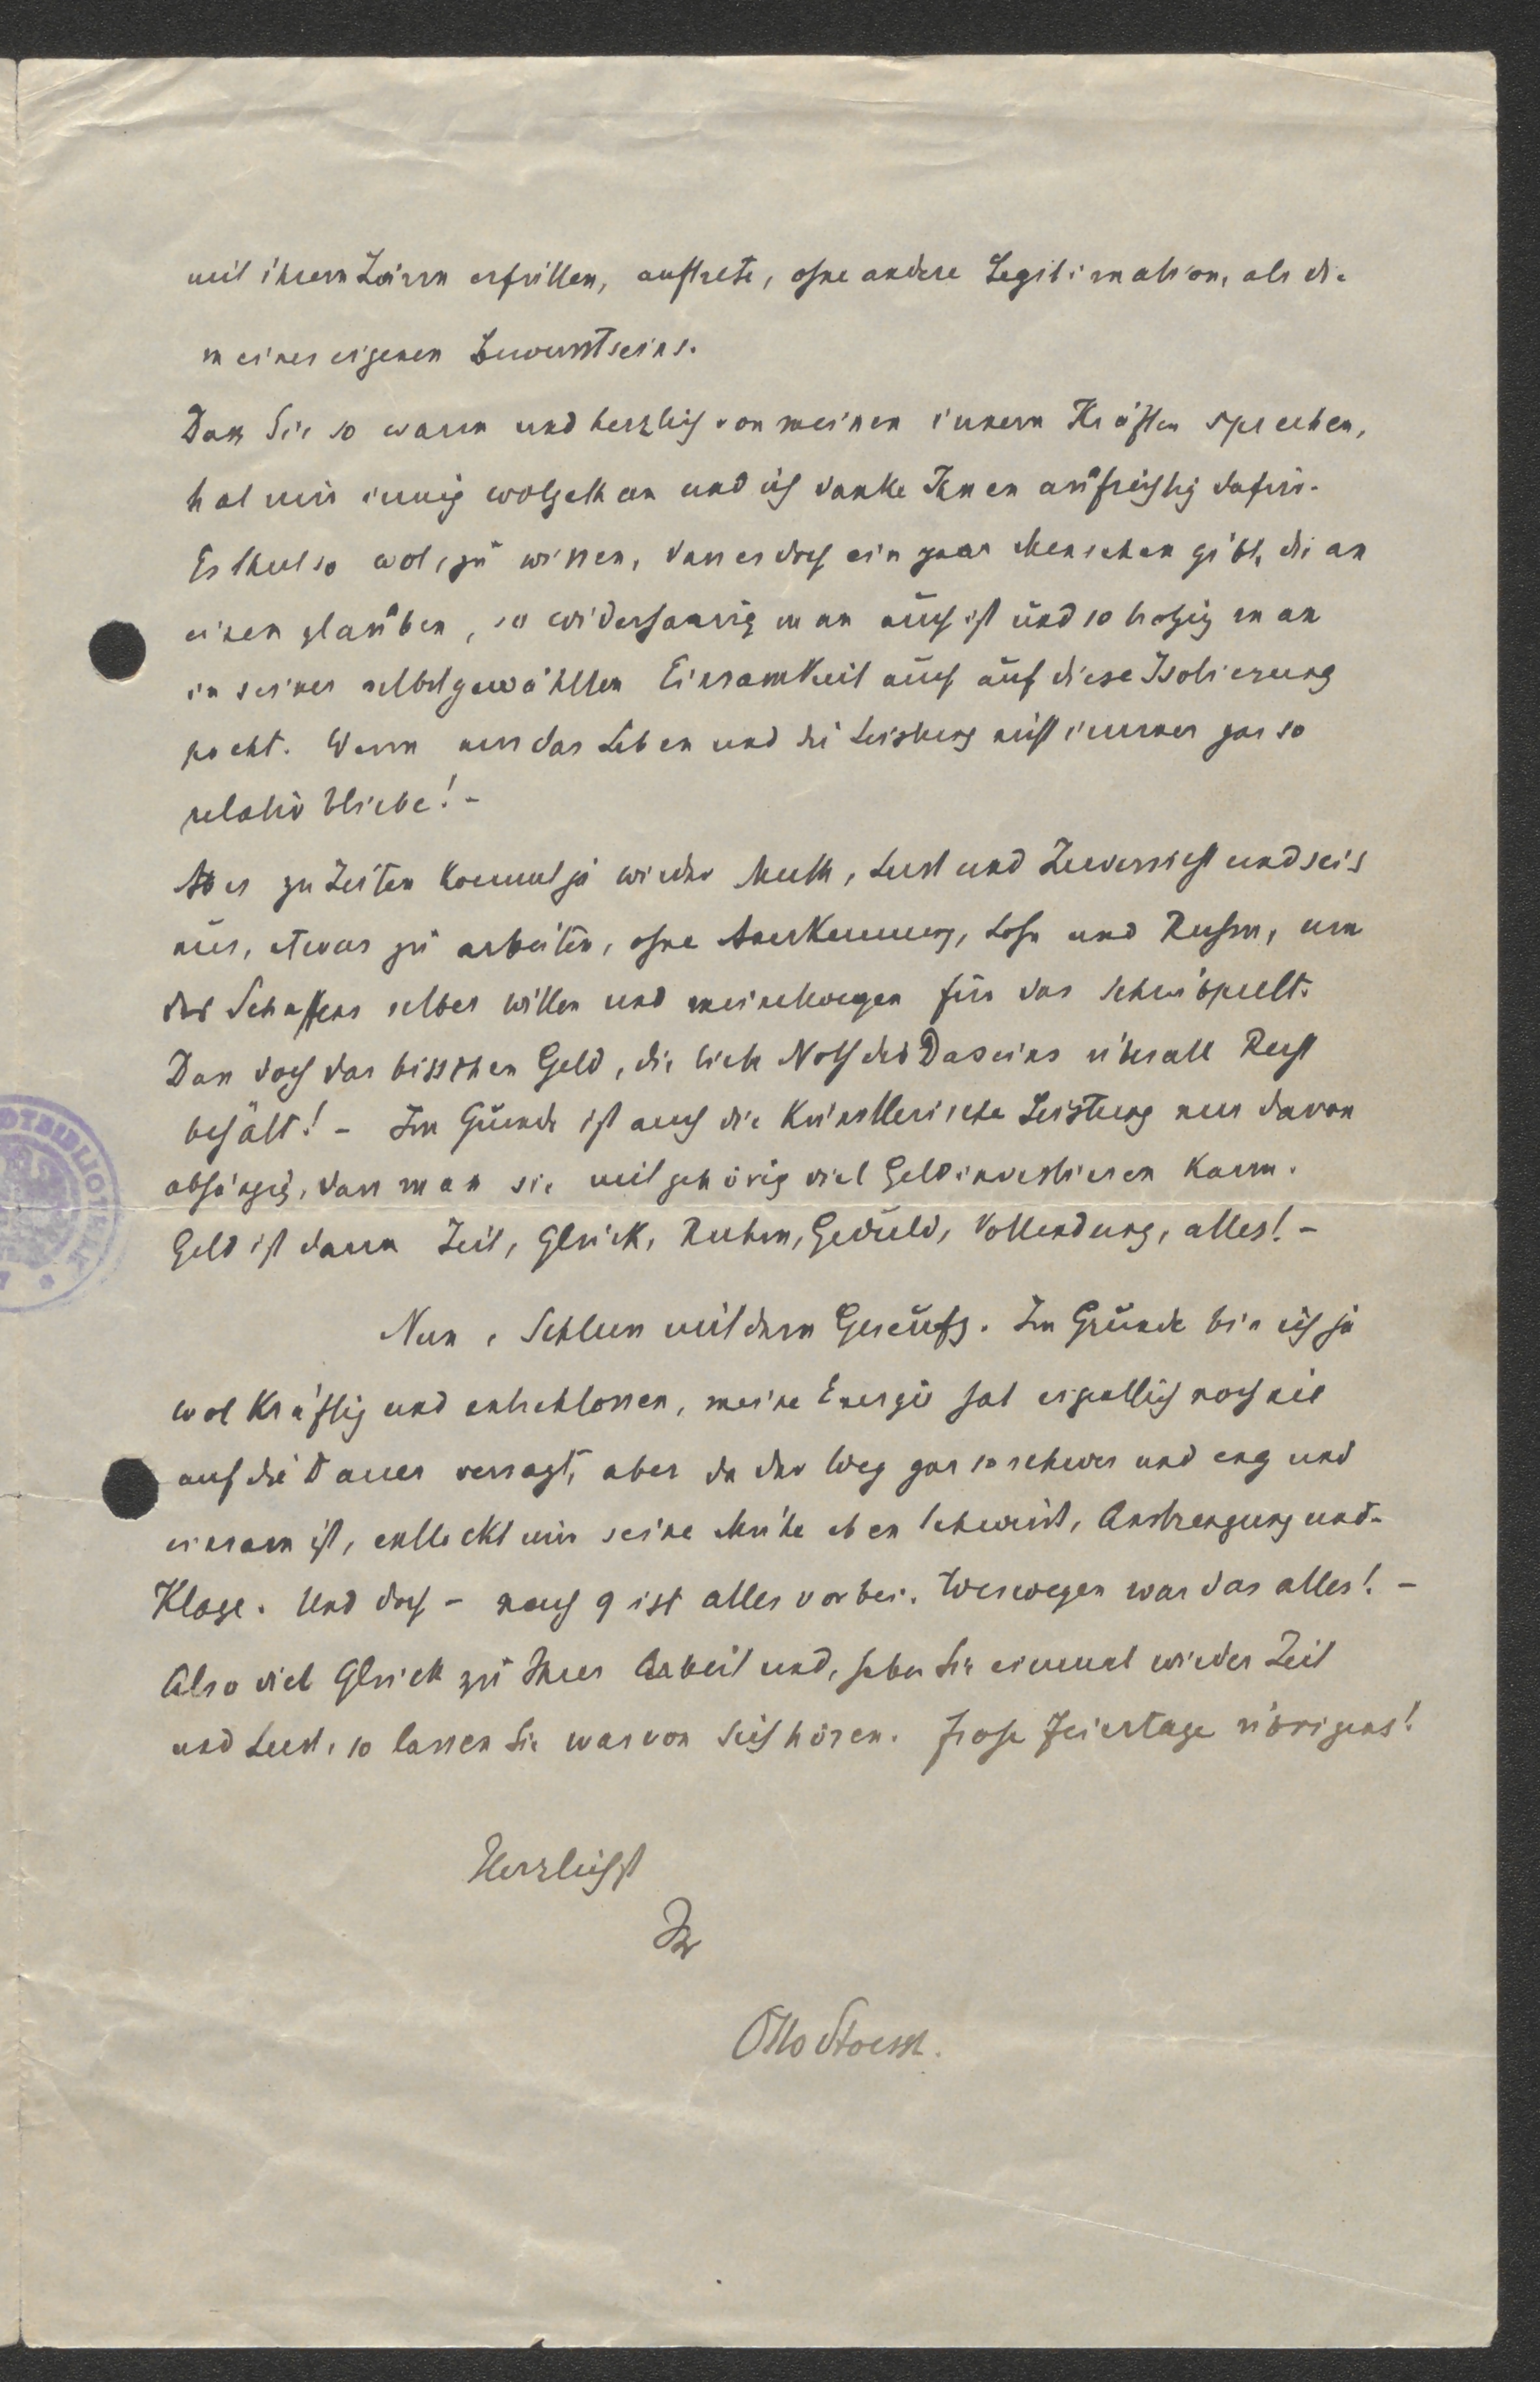 mit ihrem Lärm erfüllen, auftrete, ohne andere Legitimation, als die
meines eigenen Bewusstseins.
Dass Sie so warm und herzlich von meinen innern Kräften sprechen,
hat mir innig wolgethan und ich danke Ihnen aufrichtig dafür.
Es thut so wol, zu wissen, dass es doch ein paar Menschen gibt, die an
einen glauben, so widerhaarig man auch ist und so trotzig man
in seiner selbstgewählten Einsamkeit auch auf diese Isolierung
pocht. Wenn nur das Leben und die Leistung nicht immer gar so
relativ bliebe! –
Aber zu Zeiten kommt ja wieder Muth, Lust und Zuversicht und seis
nur, etwas zu arbeiten, ohne Anerkennung, Lohn und Ruhm, um
des Schaffens selber willen und meinetwegen für das Schreibpult.
Dass doch das bisschen Geld, die liebe Noth des Daseins überall Recht
behält! – Im Grunde ist auch die künstlerische Leistung nur davon
abhängig, dass man sie mit gehörig viel Geld investieren kann.
Geld ist dann Zeit, Glück, Ruhm, Geduld, Vollendung, alles! –
Nun, Schluss mit dem Geseufz. Im Grunde bin ich ja
wol kräftig und entschlossen, meine Energie hat eigentlich noch nie
auf die Dauer versagt, aber da der Weg gar so schwer und eng und
einsam ist, entlockt mir seine Mühe eben Schweiss, Anstrengung und
Klage. Und doch – nach 9 ist alles vorbei. Weswegen war das alles! –
Also viel Glück zu Ihrer Arbeit und, haben Sie einmal wieder Zeit
und Lust, so lassen Sie was von Sich hören. Frohe Feiertage übrigens!
Herzlichst
Ihr
Otto Stoessl.